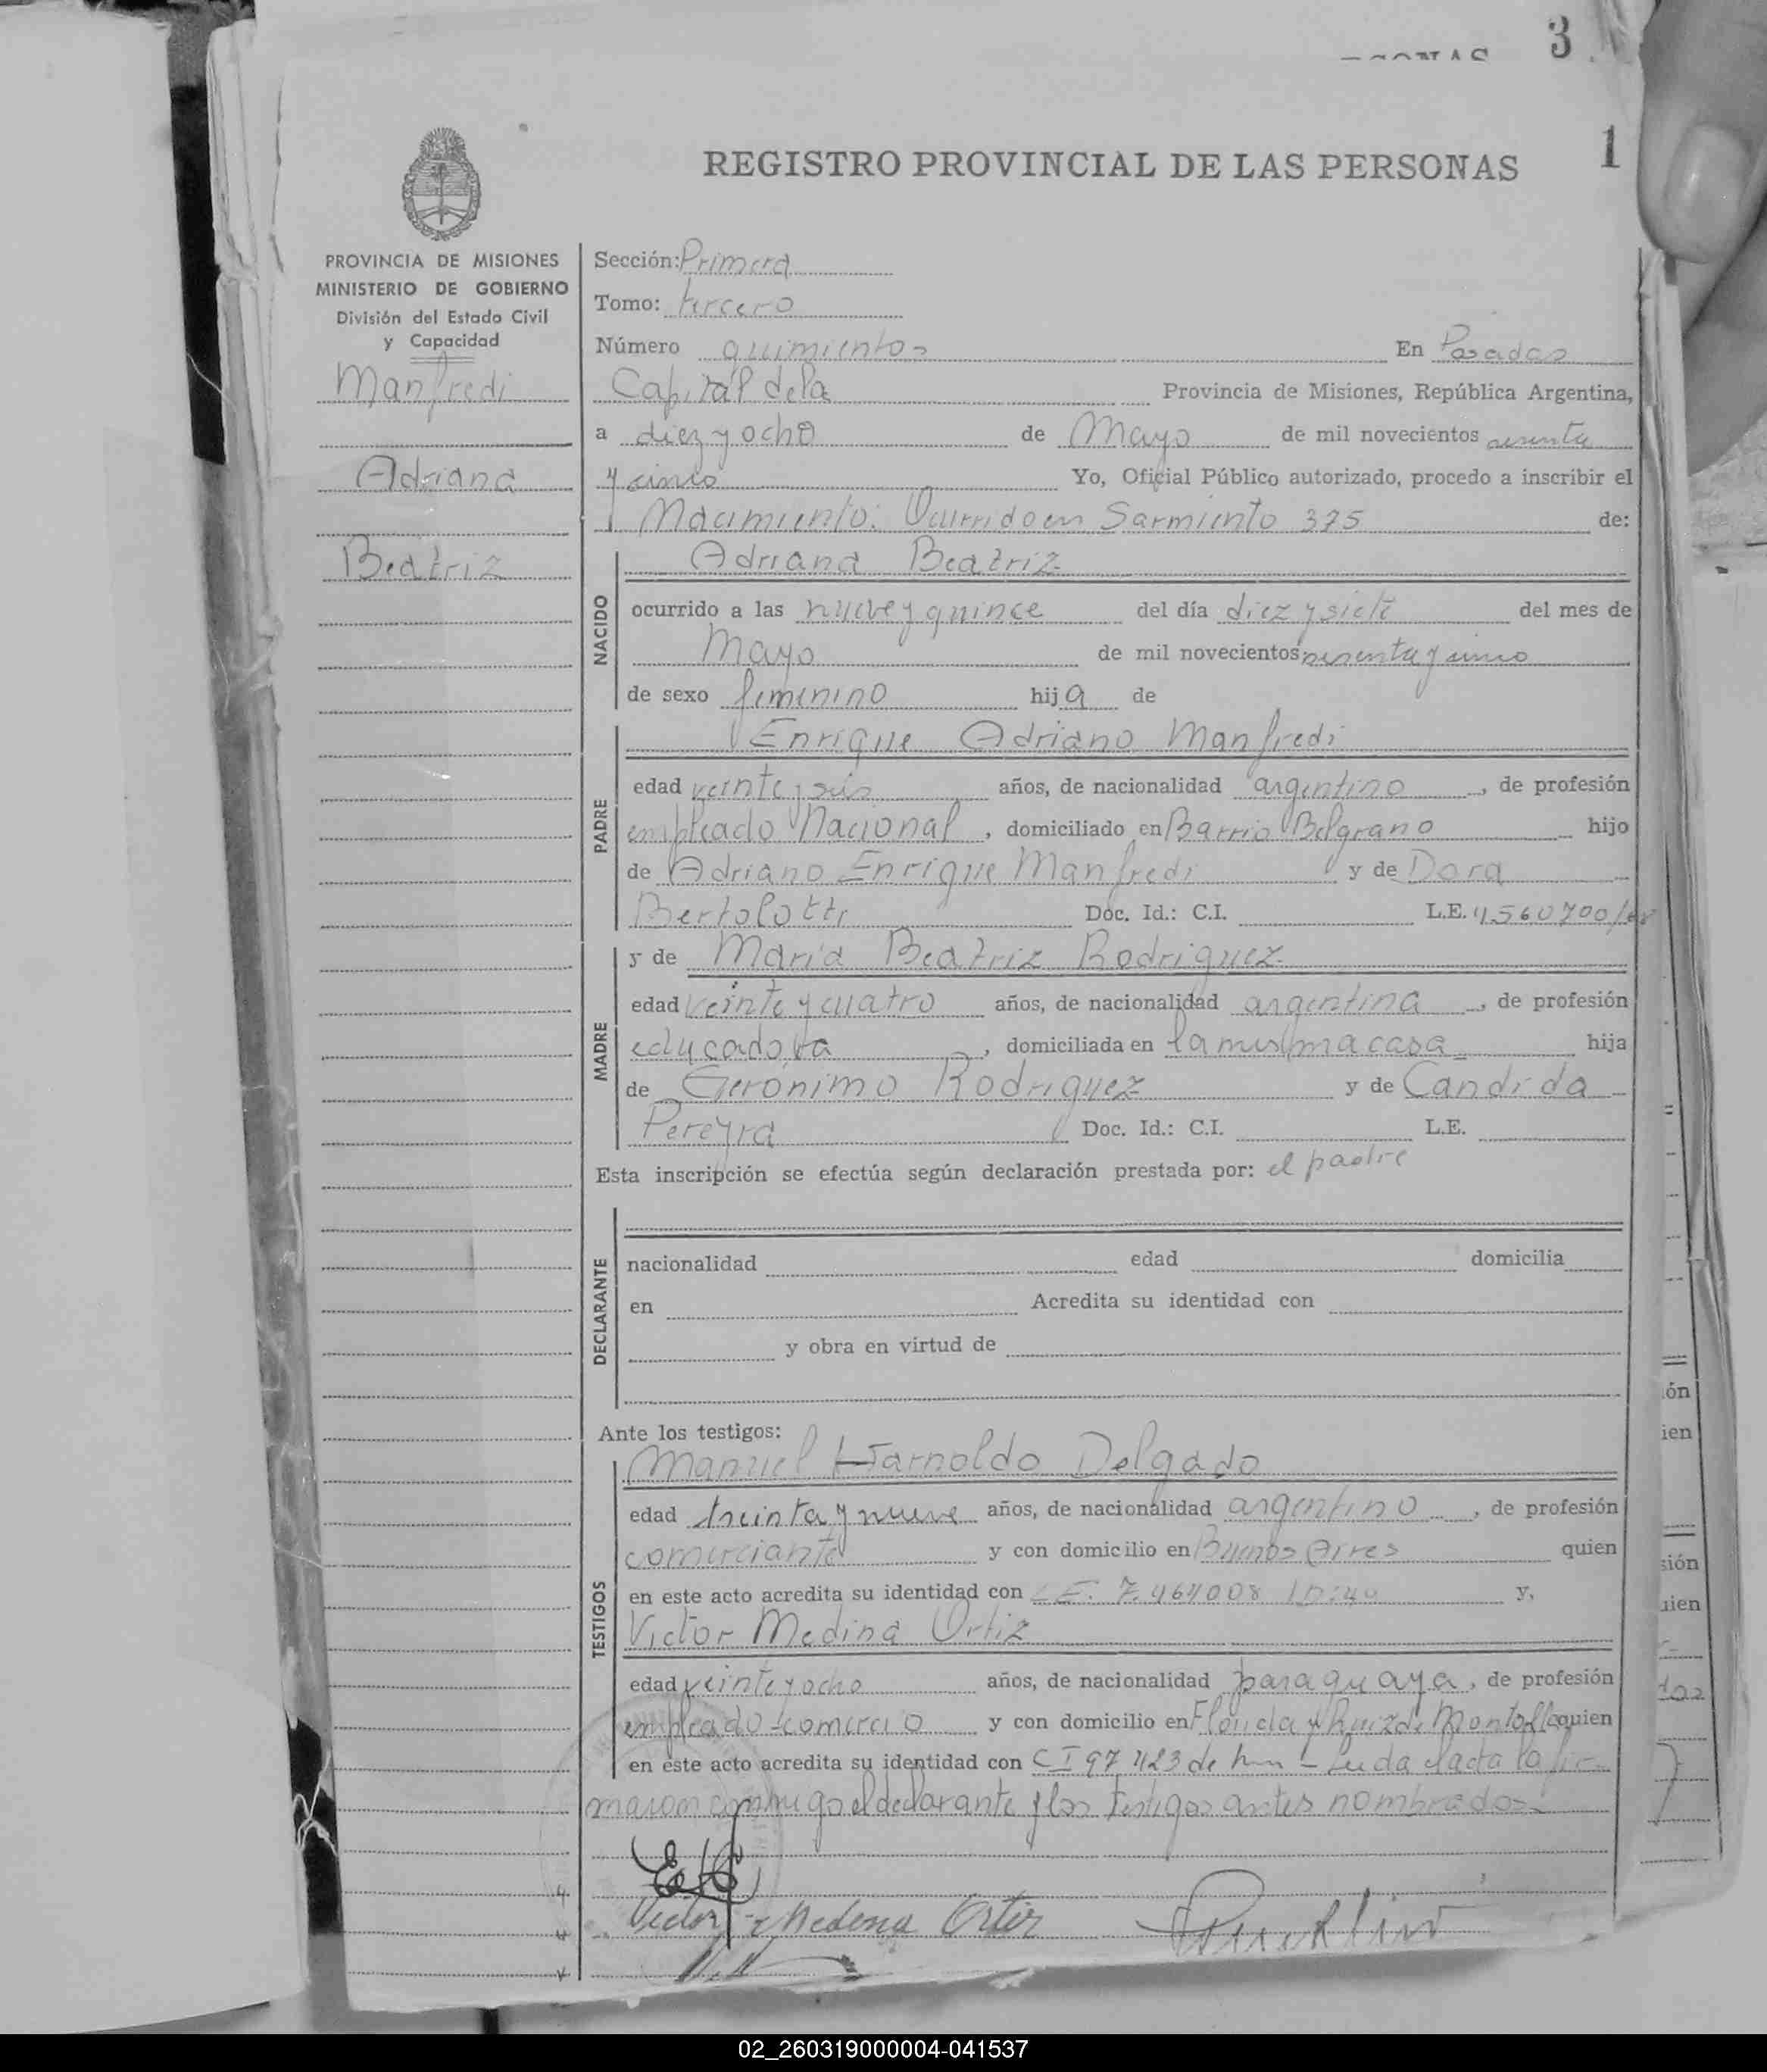 3
1
REGISTRO PROVINCIAL DE LAS PERSONAS
PROVINCIA DE MISIONES
MINISTERIO DE GOBIERNO
División del Estado Civil
y Capacidad
Manfredi
Adriana
Beatriz
Sección: Primera
Tomo: tercero
Número quinientos En Posadas
Capital de la Provincia de Misiones, República Argentina,
a diez y ocho de Mayo de mil novecientos sesenta
y cinco Yo, Oficial Público autorizado, procedo a inscribir el
Nacimiento: Ocurrido en Sarmiento 375 de:
NACIDO
Adriana Beatriz
ocurrido a las nueve y quince del día diez y siete del mes de
Mayo de mil novecientos sesenta y cinco
de sexo femenino hija de
PADRE
Enrique Adriano Manfredi
edad veinte y seis años, de nacionalidad argentino, de profesión
empleado Nacional, domiciliado en Barrio Belgrano hijo
de Adriano Enrique Manfredi y de Dora
Bertolotti Doc. Id.: C.I. L.E.
MADRE
y de Maria Beatriz Rodriguez
edad veinte y cuatro años, de nacionalidad argentina, de profesión
educadora, domiciliada en la misma casa hija
de Gerónimo Rodriguez y de Candida
Pereyra Doc. Id.: C.I. L.E.
Esta inscripción se efectúa según declaración prestada por: el padre
DECLARANTE
nacionalidad edad domicilia
en Acredita su identidad con
y obra en virtud de
Ante los testigos:
TESTIGOS
Manuel Harnoldo Delgado
edad treinta y nueve años, de nacionalidad argentino, de profesión
comerciante y con domicilio en Buenos Aires quien
en este acto acredita su identidad con L.E. 7.464008 y,
Victor Medina Ortiz
edad veinte y ocho años, de nacionalidad paraguaya, de profesión
empleado comercio y con domicilio en quien
en este acto acredita su identidad con CI 97.423 de Mnes - Leida el acta la fir-
maron conmigo el declarante y los testigos antes nombrados.-
Victor Medina Ortiz
02_260319000004-041537